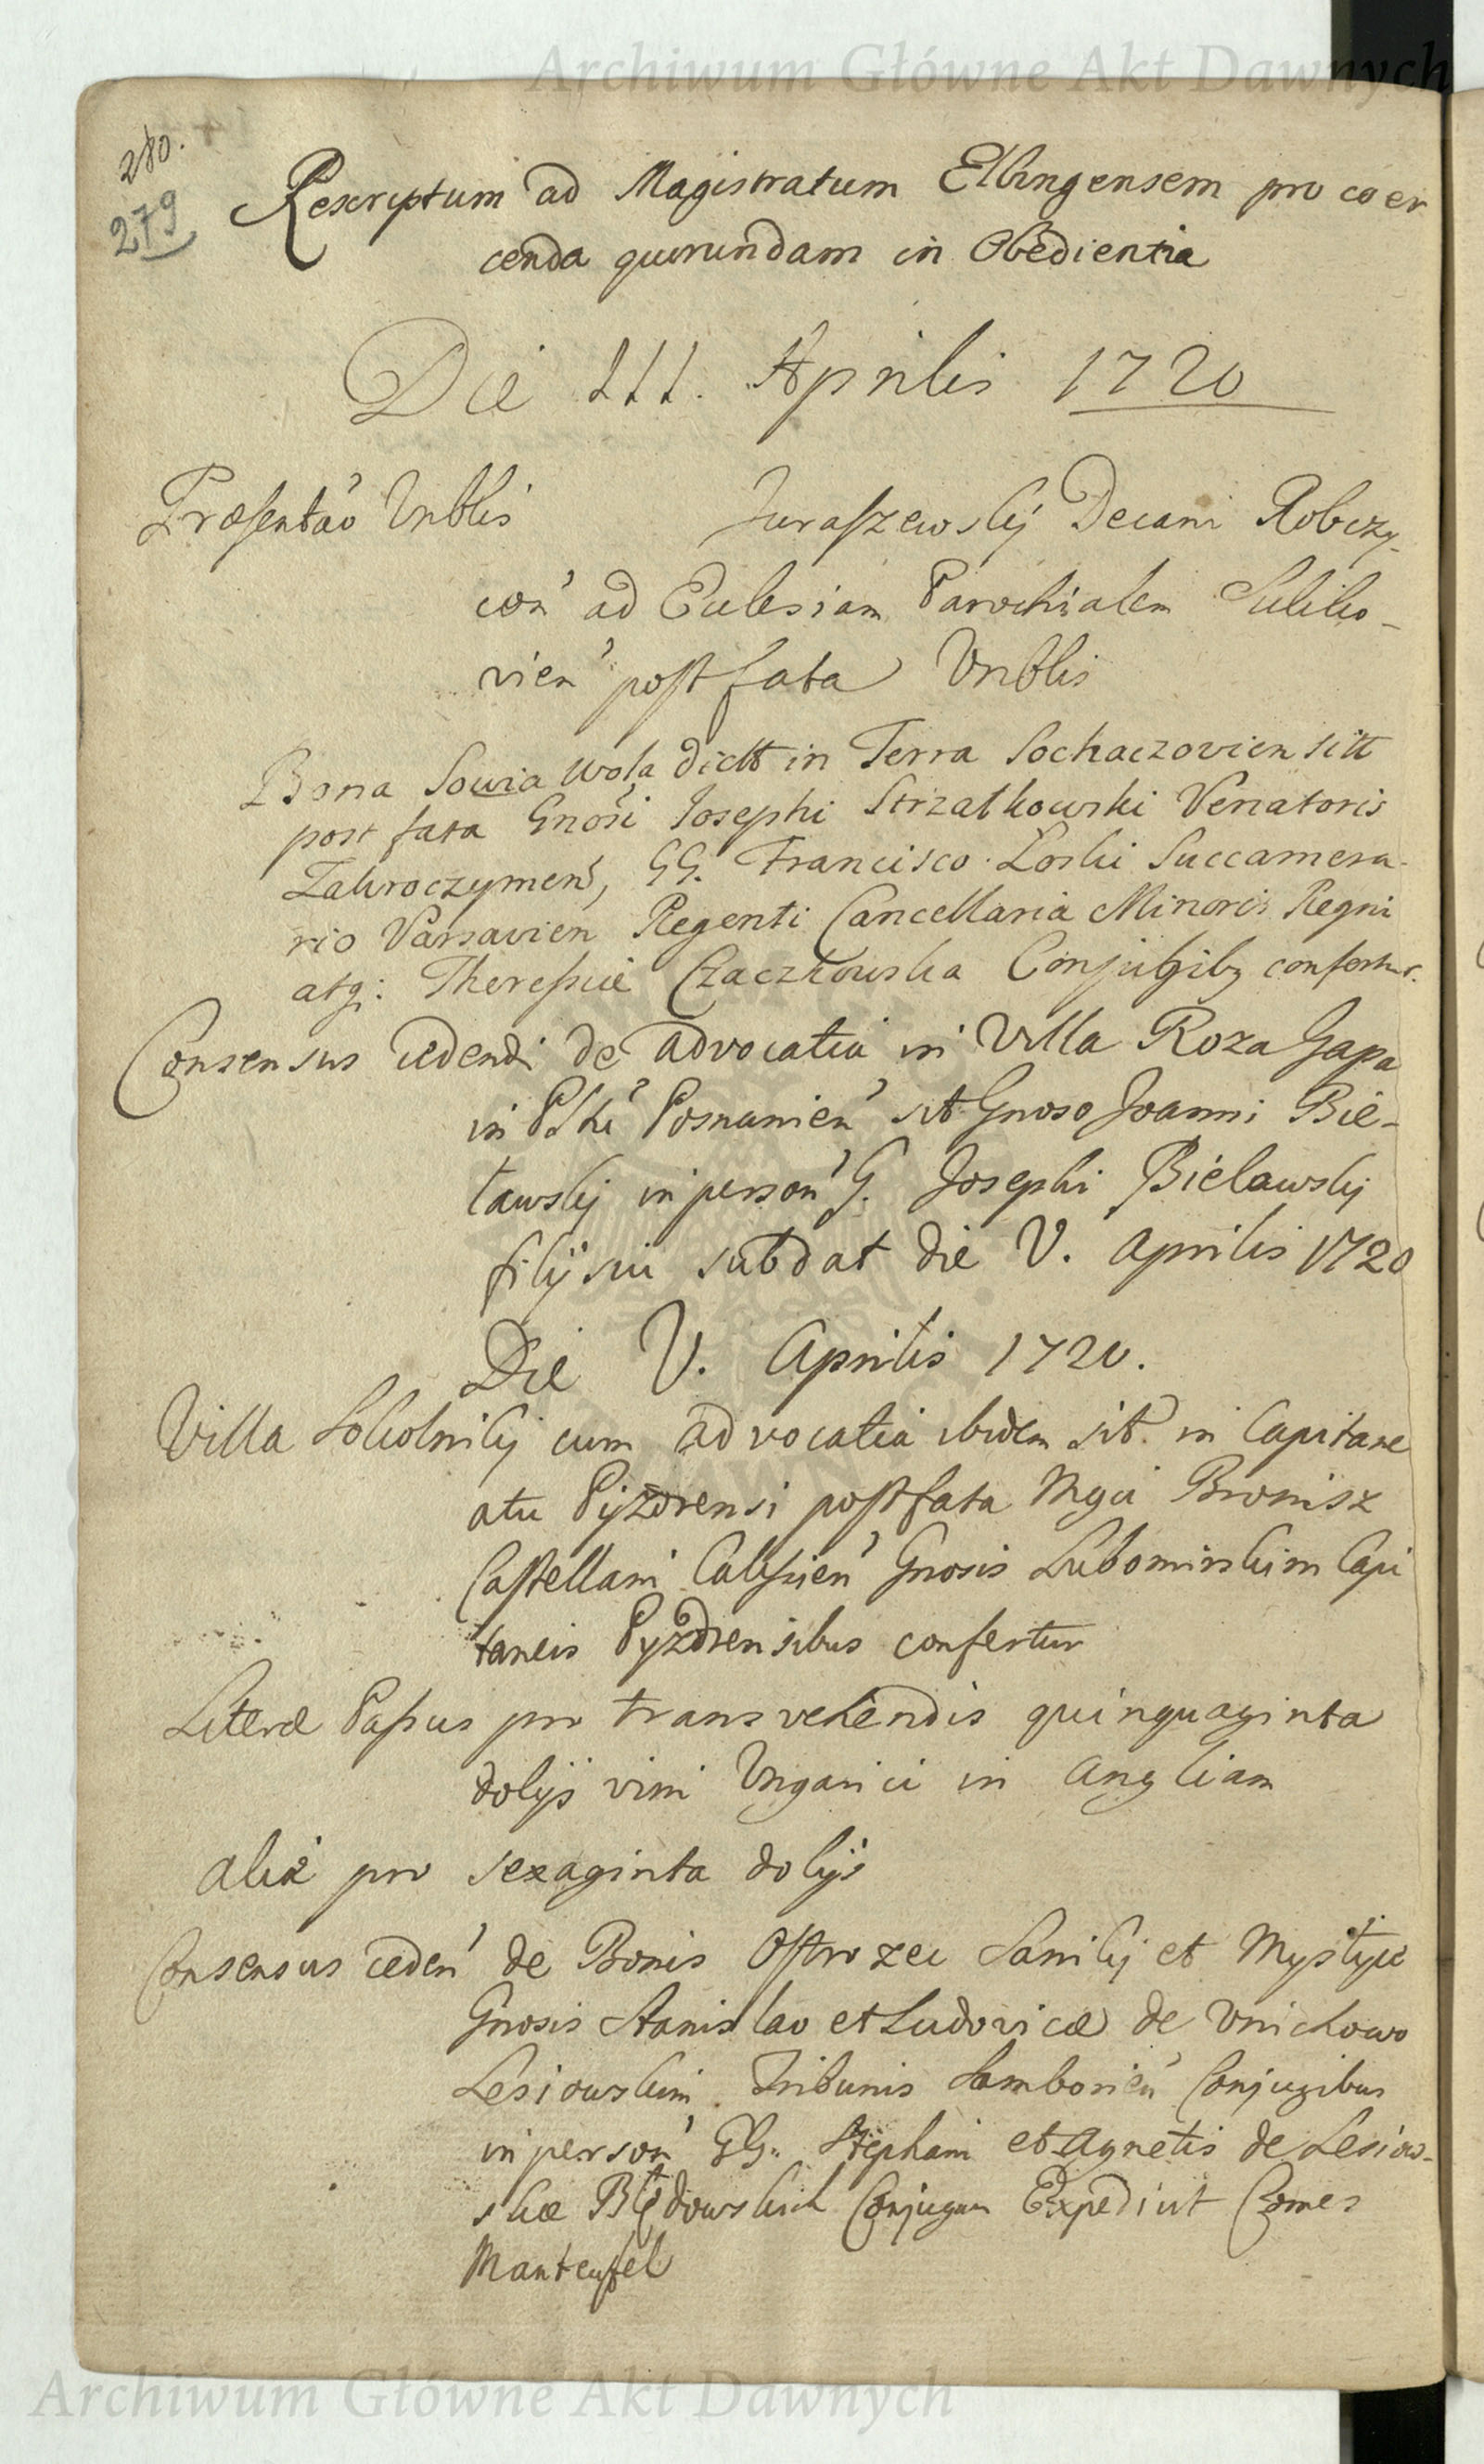 Archiwum Główne Akt Dawnych
280.
279
Rescriptum ad Magistratum Elbingensem pro coer
cenda quorundam in Obedientia
Die III. Aprilis 1720
Præsentaō Vnblis Juraszewskÿ Decani Robczy-
cen' ad Eclesiam Parochialem
vien' post fata Vnblis
Bona Sowia Wola dict in Terra Sochaczovien sitt
post fata Gnosi Josephi Strzałkowski Venatoris
Zakroczymens, GG. Francisco Łoski Succamera-
rio Varsavien Regenti Cancellaria Minoris Regni
atq: Theressiæ Czaczkowska Conjugibq confertur.
Consensus cedendi de advocatia in Villa Roza Gapa
in Posnanien' sit Gnoso Joanni Bie-
lawskÿ in person' G. Josephi Bielawskÿ
filÿ sui sub dat die V. Aprilis 1720
Die V. Aprilis 1720.
Villa Sokolnikÿ cum advocatia ibidem sit in Capitane
atu Pyzdrensi post fata Mgci Bronisz
Castellani Calissien' Gnosis Lubominskim Capi
taneis Pyzdrensibus confertur
Literæ Passus pro transvehendis quinquaginta
dolÿs vini Ungarici in Angliam
aliæ pro sexaginta dolÿs
Consensus ceden' de Bonis Ostrozec Sanikÿ et Mystÿcé
Gnosis Stanislao et Ludovicæ de Vnichowo
Lesiowskim Tribunis Samborien' Conjugibus
in person' GG. Stephani et Agnetis de Lesiow-
skæ Błędowskich Conjugum Expediut Comes
Manteufel
Archiwum Główne Akt Dawnych